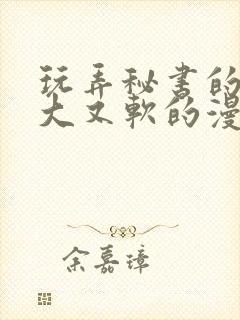 玩弄秘书的
大又软的漫
余嘉璋